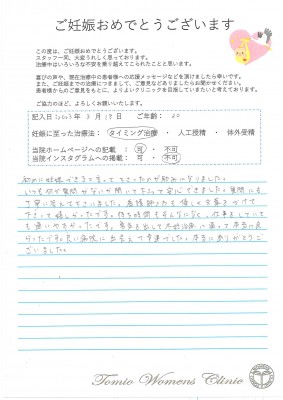 ご妊娠おめでとうございます
この度は、ご妊娠おめでとうございます。
スタッフ一同、大変うれしく思っております。
治療中はいろいろな不安を乗り越えてこられたことと思います。
喜びの声や、現在治療中の患者様への応援メッセージなどを頂けましたら幸いです。
また、ご妊娠までの治療につきまして、ご意見などありましたらお聞かせください。
患者様からのご意見をもとに、よりよいクリニックを目指していきたいと考えております。
ご協力のほど、よろしくお願いいたします。
記入日 2023年 3月 18日 ご年齢： 30
妊娠に至った治療法： タイミング治療 ・ 人工授精 ・ 体外受精
当院ホームページへの記載 ： 可 ・ 不可
当院インスタグラムへの掲載： 可 ・ 不可
初めに妊娠できると言って下さったのが励みになりました。
いつも何か質問がないか聞いて下さって安心できました。質問にも
丁寧に答えて下さいました。看護師さんも優しく言葉をかけて
下さって嬉しかったです。待ち時間もそんなになく、仕事をしていて
も通いやすかったです。勇気を出して不妊治療に通って本当に良
かったです。良い病院に出会えて幸運でした。本当にありがとうご
ざいました。
Tomio Womens Clinic